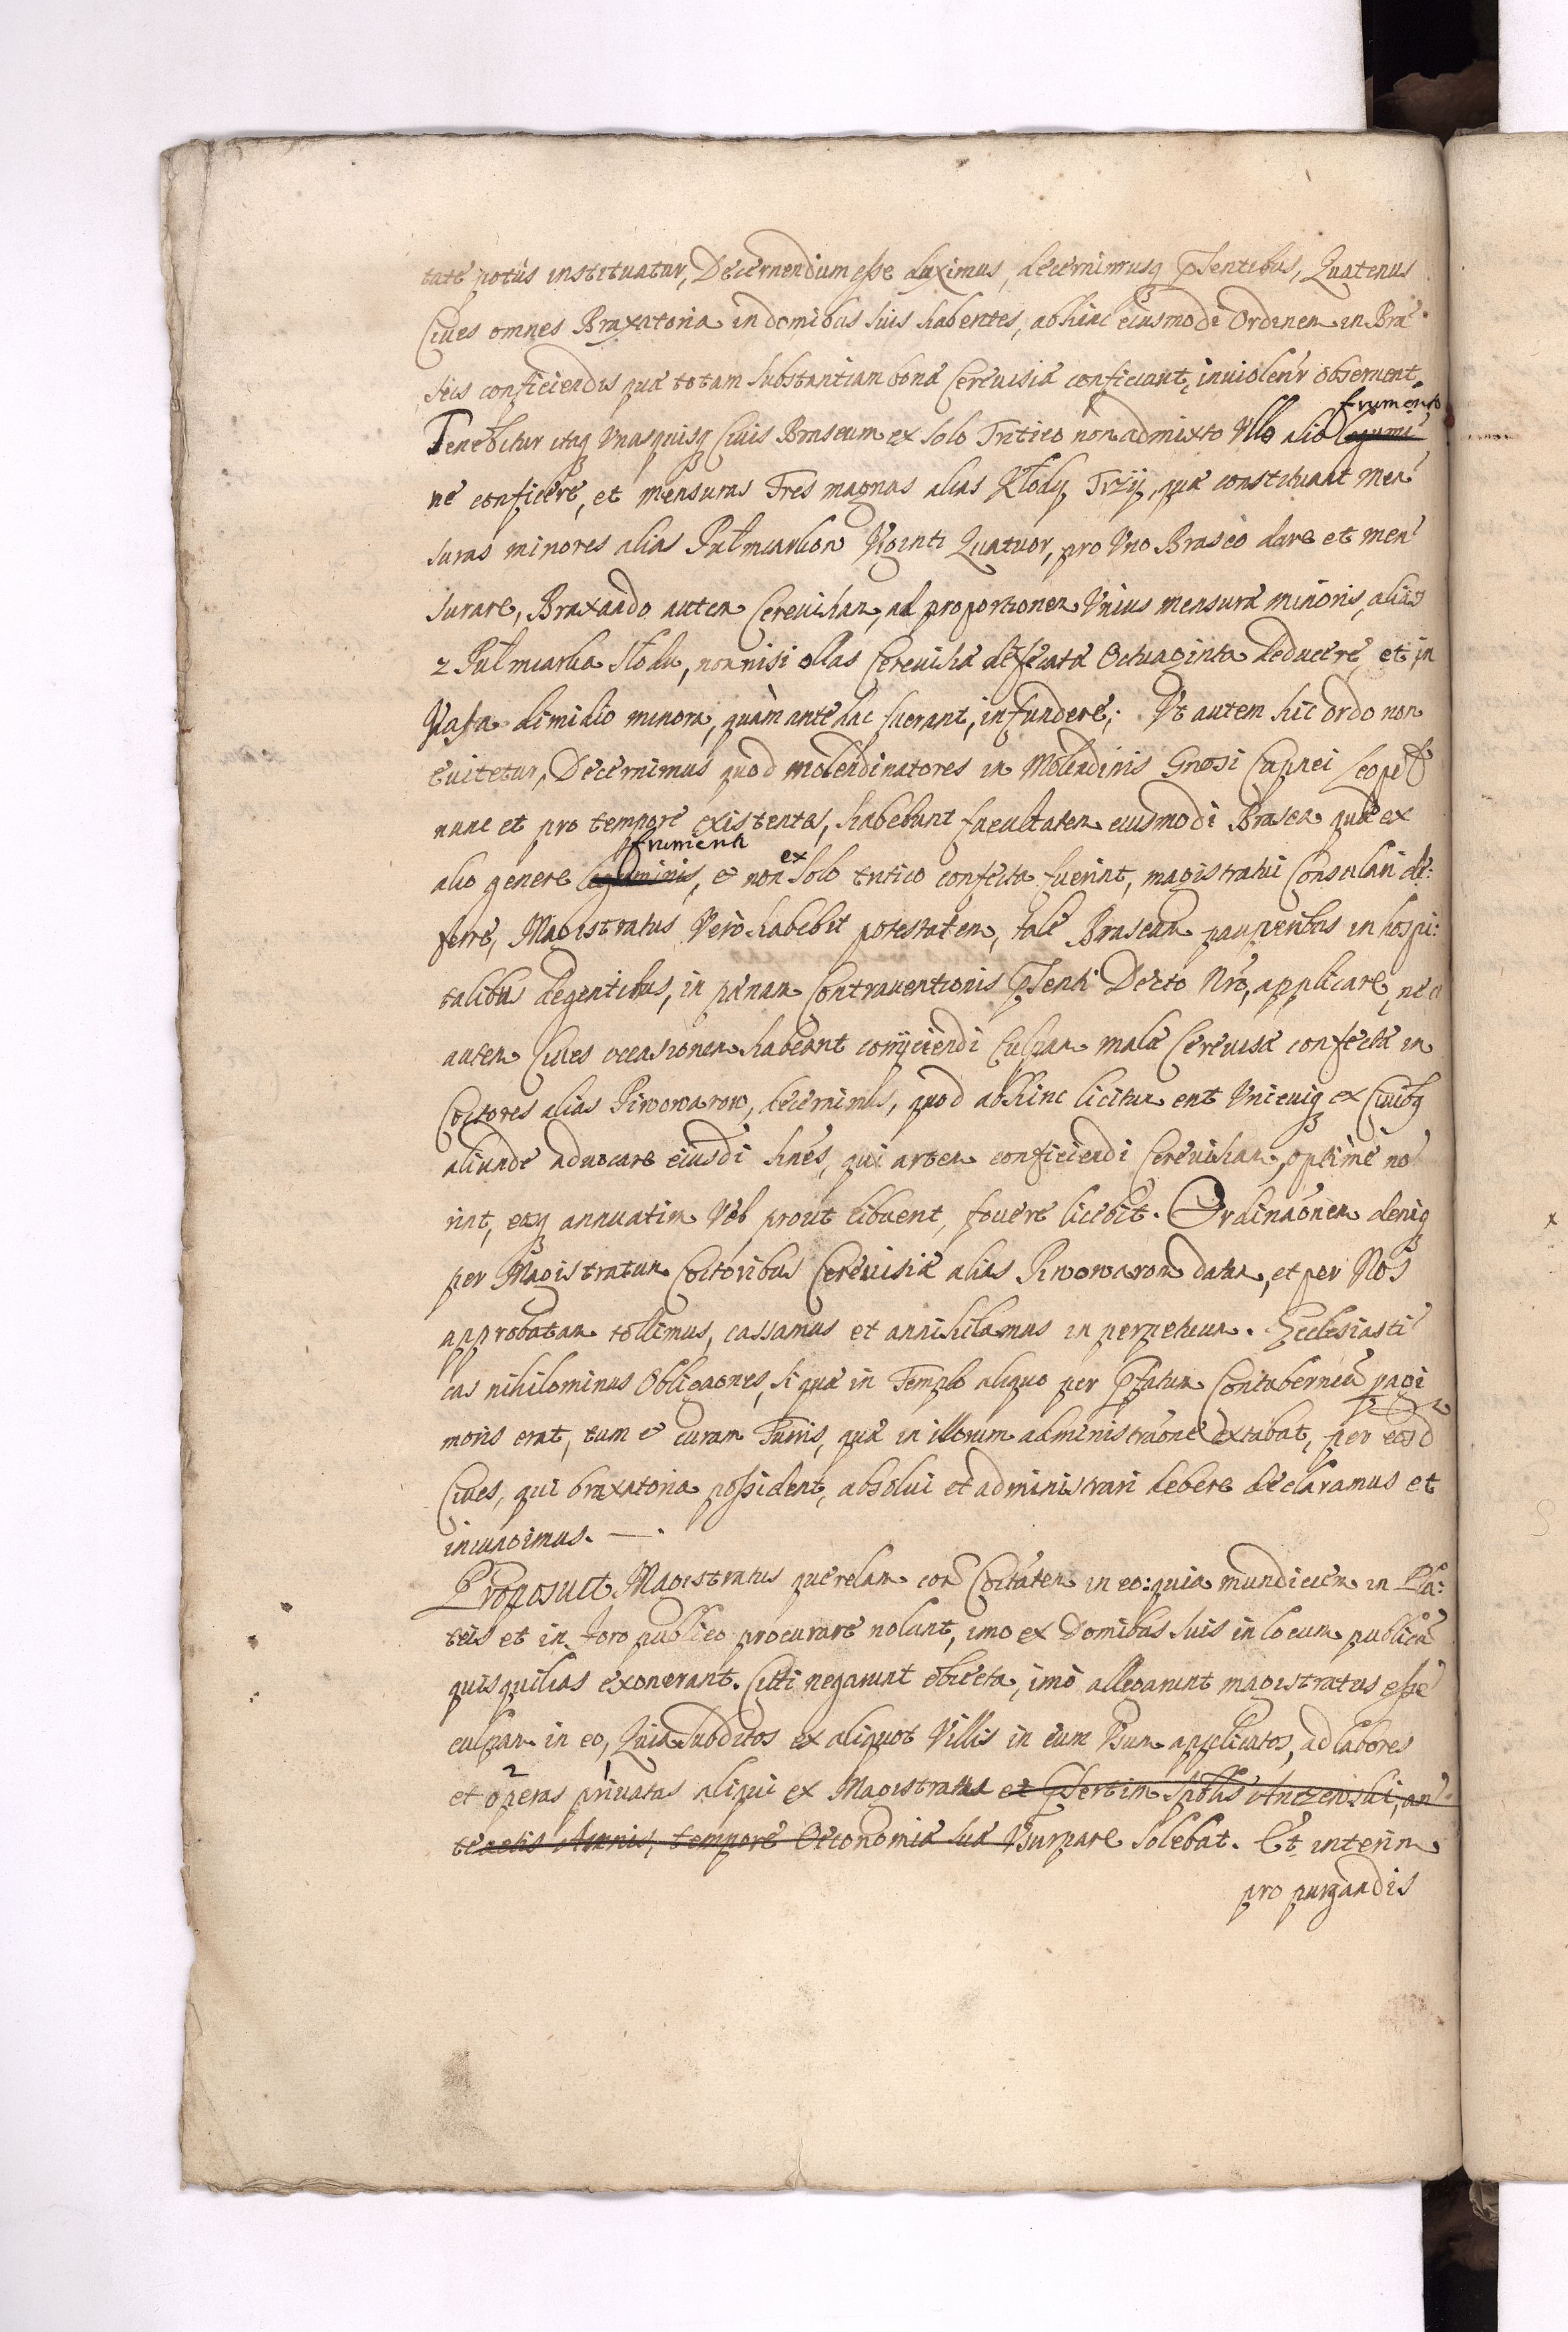 tate potûs instituatur, Decernendum esse duximus, decernimusq pñsentibus, Quatenus
Cives omnes Braxatoria in domibus suis habentes, abhinc eiusmodi Ordinem in Bra
seis conficiendis quæ totam substantiam bonæ Cerevisiæ conficiunt, inviolenr observent,
Tenebitur itaq Unusquisq Civis Braseum ex solo Tritico non admixto Ullo alio legumi frumento
ne conficere, et mensuras Tres magnas alias Kłody Trzÿ, quæ constituunt men
suras minores alias Pułmiarkow Viginti Quatuor, pro Uno Braseo dare et men
surare, Braxando autem Cerevisiam, ad proportionem Unius mensuræ minoris, alias
z Pułmiarka słodu, non nisi ollas Cerevisiæ defecatæ Octuaginta deducere, et in
Vasa dimidio minora, quàm antehac fuerant, infundere; Ut autem hic ordo non
evitetur, Decernimus quod molendinatores in Molendinis Gnosi Capnei
nunc et pro tempore existentes, habebunt facultatem eiusmodi Brasea quæ ex
alio genere leguminis frumenti, et non ex solo tritico confecta fuerint, magistratui Consulari de:
ferre, Magistratus verò habebit potestatem, tale Braseum pauperibus in hospi:
talibus degentibus, in pænam Contraventionis pñsenti Decto Nro, applicare, ne
autem Cives occasionem habeant conÿciendi Culpam malæ Cerevisiæ confectæ in
Coctores alias Piwowarow, decernimus, quod abhinc licitum erit Unicuiq ex Civibq
aliunde advocare eiusdi hnes, qui artem conficiendi Cerevisiam, optimè no
rint, eosq annuatim Vel prout libuerit, fovere licebit. Ordinaonem deniq
per Magistratum Coctoribus Cerevisiæ alias Piwowarom datam, et per Nos
approbatam tollimus, cassamus et annihilamus in perpetuum. Ecclesiasti
cas nihilominus Obligaones, si quæ in Templo aliquo per Pfatum Contuberniũ pagi
moris erat, tum et curam Turris, quæ in illorum administraone extabat, per eosd
Cives, qui braxatoria possident, absolvi et administrari debere declaramus et
iniungimus. —.
Proposuit Magistratus querelam con Coitatem in eo: quia mundiciem in Pla:
teis et in foro publico procurare nolunt, imo ex Domibus suis in locum publicũ
quisquilias exonerant. Citti negarunt obiecta, imò allegarunt magistratus esse
culpam in eo, Quia subditos ex aliquot Villis in eum Usum applicatos, ad labores
et operas privatas aliqui ex Magistratu et pñsertim Spblis Anczewski, an
teactis Annis, tempore Oeconomiæ suæ Usurpare solebat. Et interim
pro purgandis